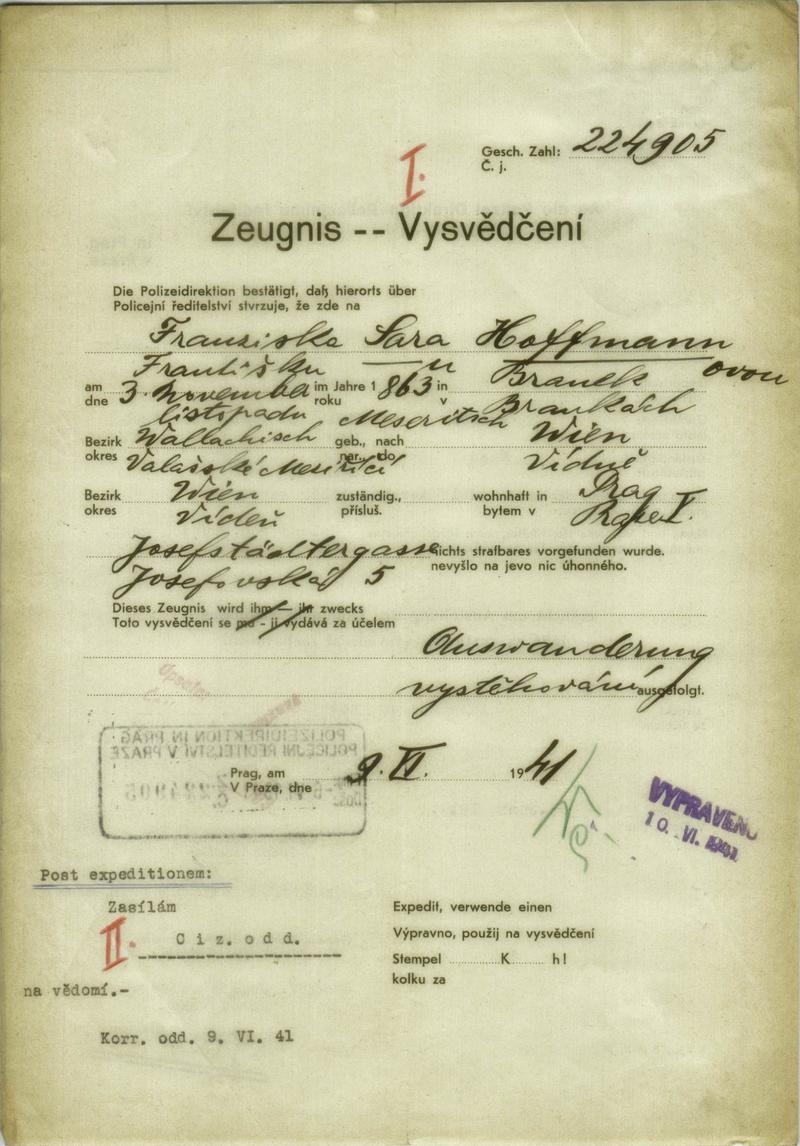 Gesch. Zahl: 224905
Č. j.
I.
Zeugnis -- Vysvědčení
Die Polizeidirektion bestätigt, daß hierorts über
Policejní ředitelství stvrzuje, že zde na
Franziska Sara Hoffmann
Františku — " — ovou
am 3. November im Jahre 1863 in Branek
dne listopadu roku v Brankách
Bezirk Wallachisch Meseritsch geb., nach Wien
okres Valašské Meziříčí nar., do Vídně
Bezirk Wien zuständig., wohnhaft in Prag
okres Vídeň přísluš. bytem v Praze V.
Josefstädtergasse nichts strafbares vorgefunden wurde.
Josefovská 5 nevyšlo na jevo nic úhonného.
Dieses Zeugnis wird ihm — ihr zwecks
Toto vysvědčení se mu - ji vydává za účelem
Auswanderung
vystěhování ausgefolgt.
POLIZEIDIREKTION IN PRAG
POLICEJNÍ ŘEDITELSTVÍ V PRAZE
Prag, am 9. VI. 1941
V Praze, dne
VYPRAVENO
10. VI. 1941
Post expeditionem:
Zasílám
II. Ciz. odd.
na vědomí.-
Korr. odd. 9. VI. 41
Expedit, verwende einen
Výpravno, použij na vysvědčení
Stempel K h!
kolku za